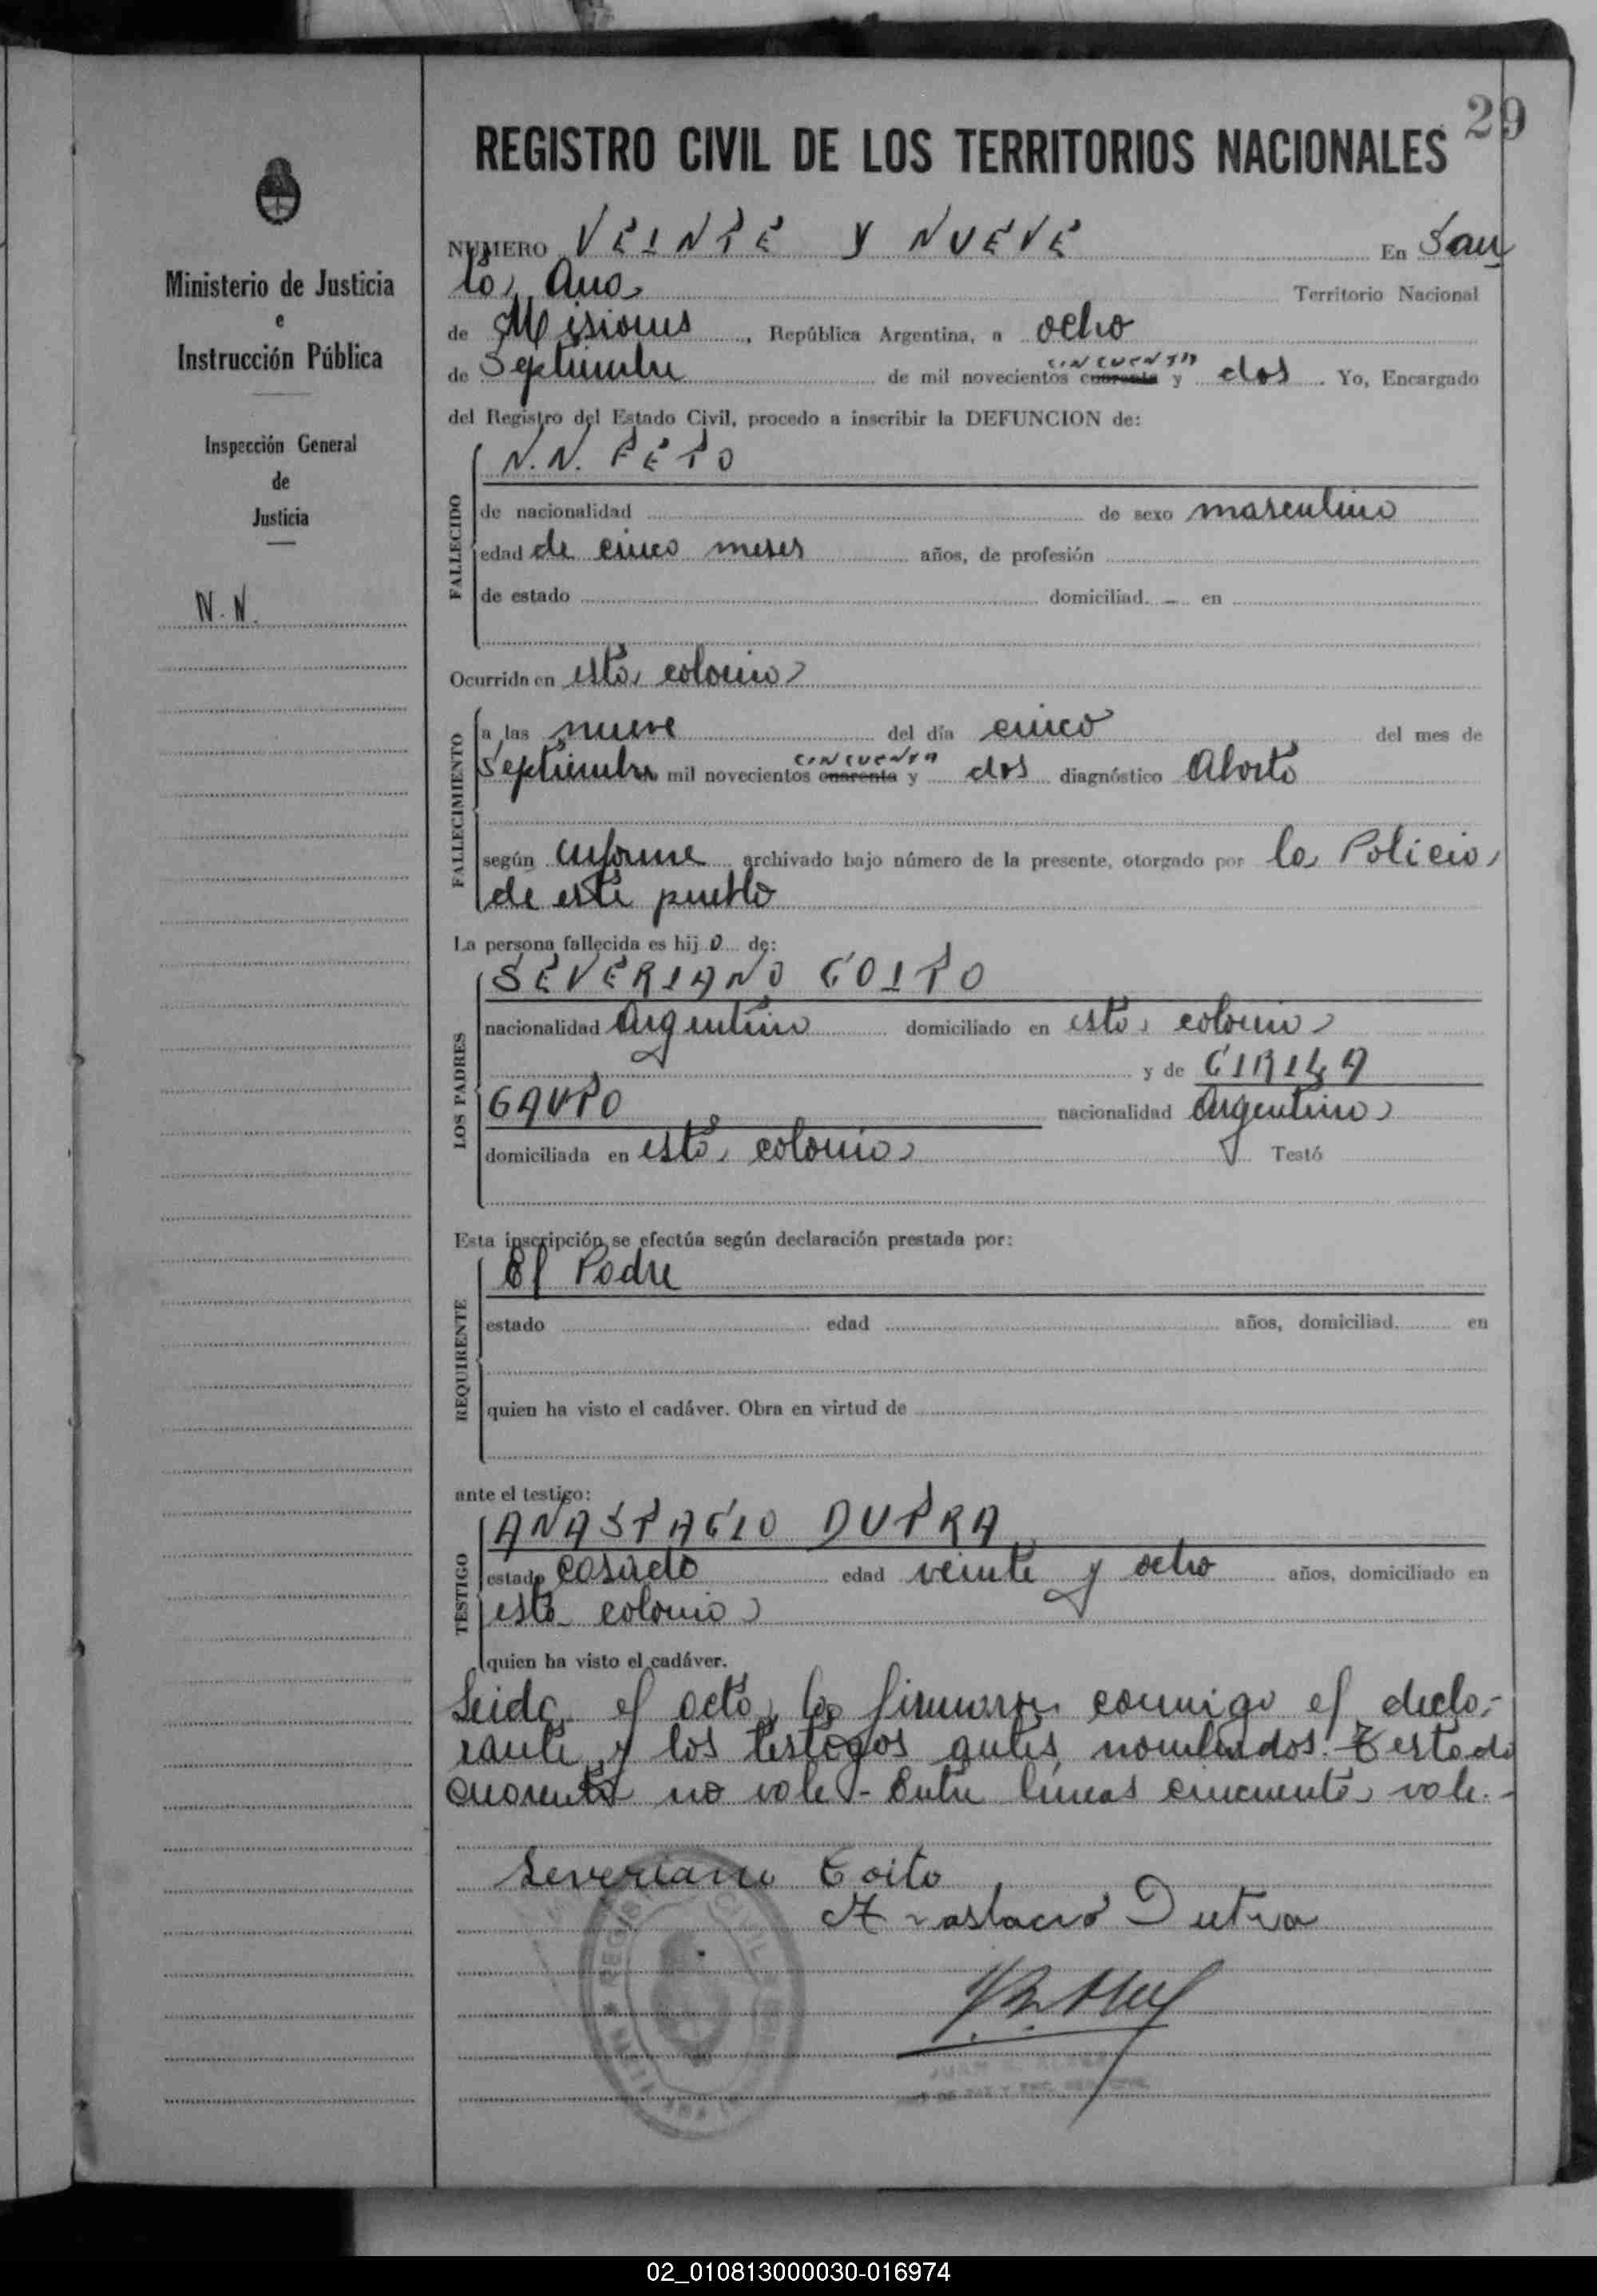 29
REGISTRO CIVIL DE LOS TERRITORIOS NACIONALES
Ministerio de Justicia
e
Instrucción Pública
Inspección General
de
Justicia
N. N.
NUMERO VEINTE Y NUEVE En San
ta Ana Territorio Nacional
de Misiones, República Argentina, a ocho
de Septiembre de mil novecientos cuarenta cincuenta y dos. Yo, Encargado
del Registro del Estado Civil, procedo a inscribir la DEFUNCION de:
FALLECIDO
N. N. FETO
de nacionalidad de sexo masculino
edad de cinco meses años, de profesión
de estado domiciliad. – en
Ocurrida en esta colonia
FALLECIMIENTO
a las nueve del día cinco del mes de
Septiembre mil novecientos cuarenta cincuenta y dos diagnóstico Aborto
según informe archivado bajo número de la presente, otorgado por la Policia
de este pueblo
La persona fallecida es hij o de:
LOS PADRES
SEVERIANO COITO
nacionalidad Argentino domiciliado en esta colonia
y de CIRILA
GAUTO nacionalidad Argentina
domiciliada en esta colonia Testó
Esta inscripción se efectúa según declaración prestada por:
REQUIRENTE
El Padre
estado edad años, domiciliad. en
quien ha visto el cadáver. Obra en virtud de
ante el testigo:
TESTIGO
ANASTACIO DUTRA
estado casado edad veinte y ocho años, domiciliado en
esta colonia
quien ha visto el cadáver.
Leida el acta, la firmaron conmigo el decla-
rante y los testigos antes nombrados. Testado
cuarenta no vale - Entre lineas cincuenta vale. -
Severiano Coito
Anastacio Dutra
02_010813000030-016974